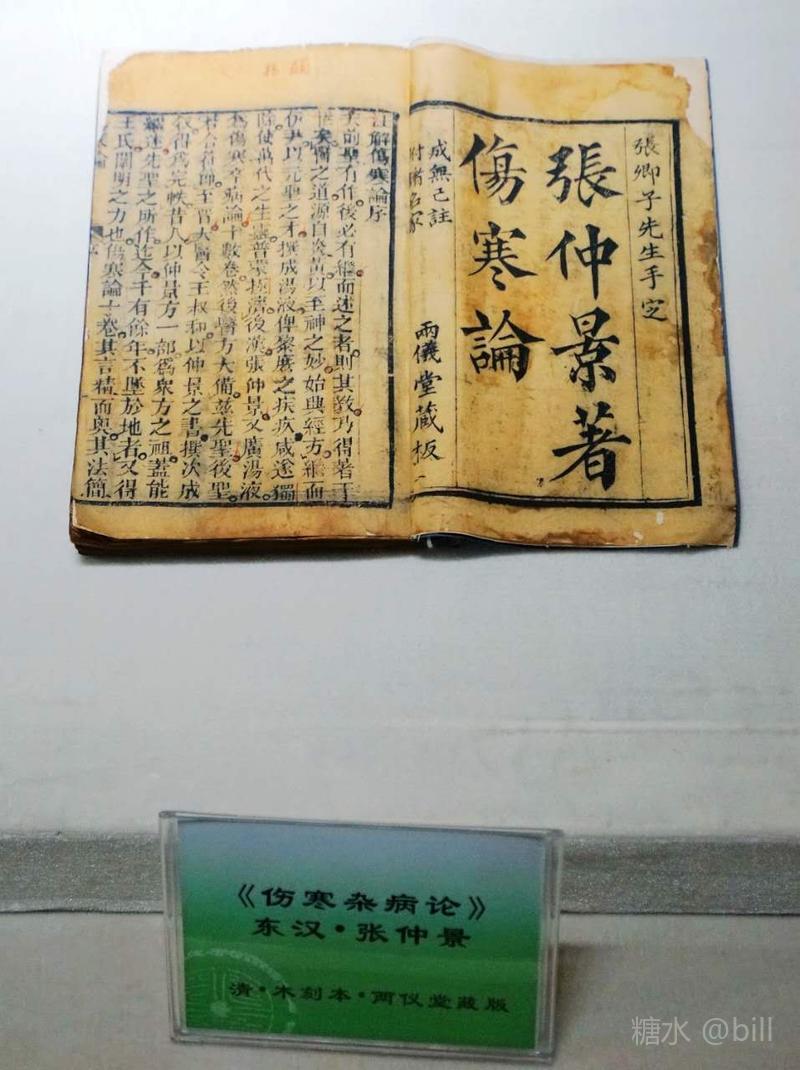 張卿子先生手定
張仲景著
傷寒論
成無己註
附諸名家
兩儀堂藏板
註解傷寒論序
夫前聖有作後必有繼而述之者則其教乃得著于
世矣醫之道源自炎黃以至神之妙始興經方繼而
伊尹以元聖之才撰成湯液俾黎庶之疾疢咸遂蠲
除使萬代之生靈普蒙拯濟後漢張仲景又廣湯液
為傷寒卒病論十數卷然後醫方大備茲先聖後聖
若合符節至晉太醫令王叔和以仲景之書撰次成
敘得為完帙昔人以仲景方一部為衆方之祖蓋能
繼述先聖之所作迄今千有餘年不墜於地者又得
王氏闡明之力也傷寒論十卷其言精而奧其法簡
《伤寒杂病论》
东汉·张仲景
清·木刻本·两仪堂藏版
糖水 @bill